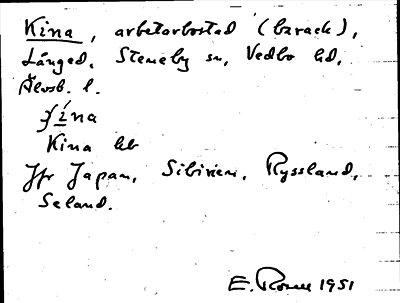 Kina, arbetarbostad (barack),
Långed, Steneby sn, Vedbo hd,
Älvsb. l.
ʃína
Kina hb
Jfr Japan, Sibirien, Ryssland,
Seland.
E. Rosell 1951